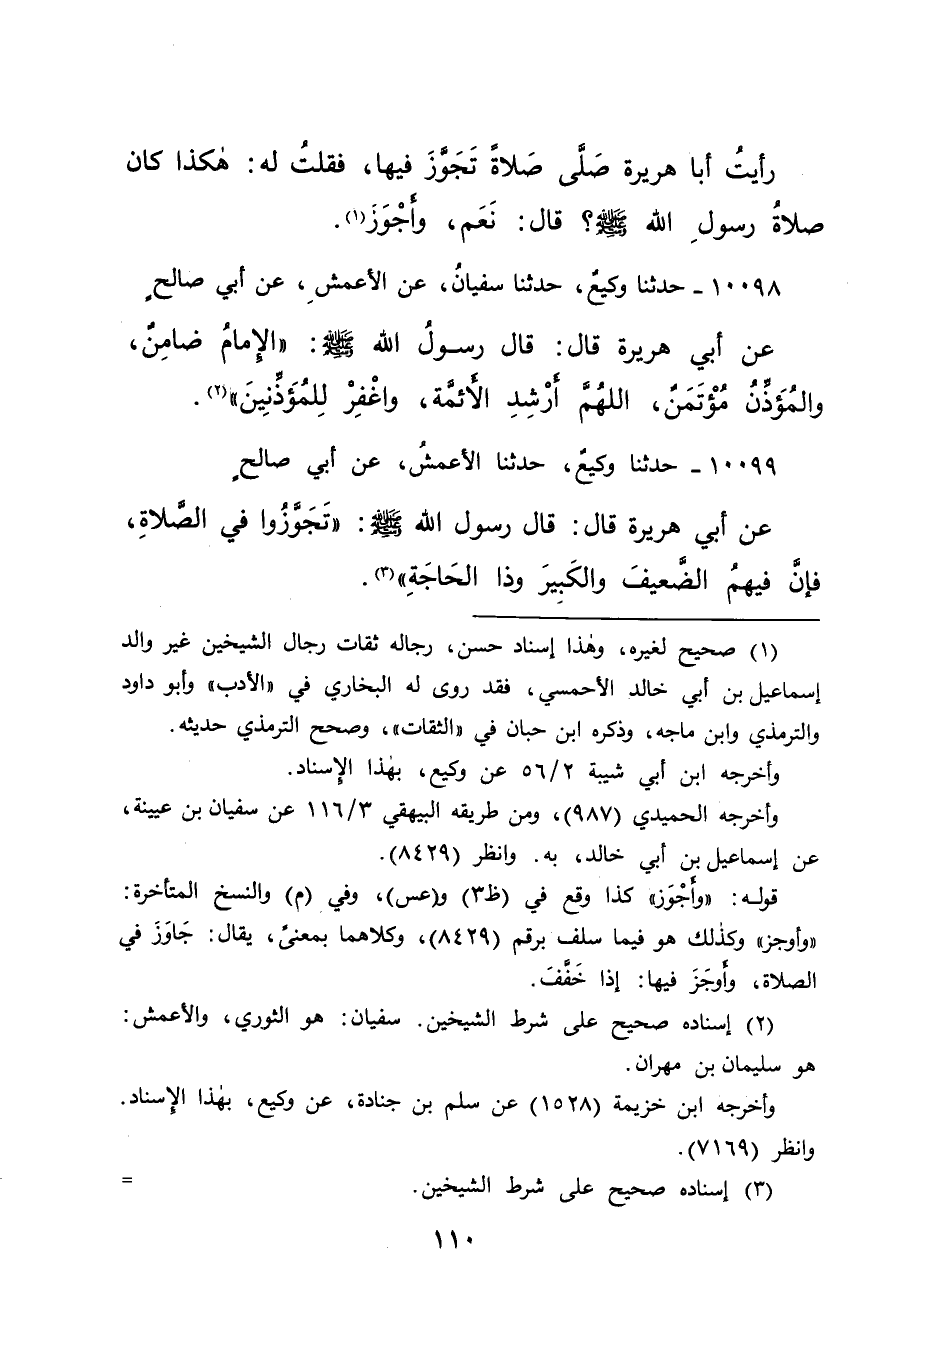 رأيتُ أبا هريرة صَلَّى صَلاةً تَجَوَّزَ فيها، فقلتُ له: هٰكذا كان
صلاةُ رسولِ الله ﷺ؟ قال: نَعَم، وأَجْوَزَ(١).
١٠٠٩٨ ـ حدثنا وكيعٌ، حدثنا سفيانُ، عن الأعمشِ، عن أبي صالحٍ
عن أبي هريرة قال: قال رسولُ الله ﷺ: «الإِمامُ ضامِنٌ،
والمُؤَذِّنُ مُؤْتَمَنٌ، اللهُمَّ أَرْشِدِ الأَئمَّة، واغْفِرْ لِلمُؤَذِّنِينَ»(٢).
١٠٠٩٩ ـ حدثنا وكيعٌ، حدثنا الأعمشُ، عن أبي صالحٍ
عن أبي هريرة قال: قال رسول الله ﷺ: «تَجَوَّزُوا في الصَّلاةِ،
فإنَّ فيهمُ الضَّعيفَ والكَبِيرَ وذا الحَاجَةِ»(٣).
(١) صحيح لغيره، وهٰذا إسناد حسن، رجاله ثقات رجال الشيخين غير والد
إسماعيل بن أبي خالد الأحمسي، فقد روى له البخاري في «الأدب» وأبو داود
والترمذي وابن ماجه، وذكره ابن حبان في «الثقات»، وصحح الترمذي حديثه.
وأخرجه ابن أبي شيبة ٥٦/٢ عن وكيع، بهٰذا الإِسناد.
وأخرجه الحميدي (٩٨٧)، ومن طريقه البيهقي ١١٦/٣ عن سفيان بن عيينة،
عن إسماعيل بن أبي خالد، به. وانظر (٨٤٢٩).
قوله: «وأَجْوَز» كذا وقع في (ظ٣) و(عس)، وفي (م) والنسخ المتأخرة:
«وأوجز» وكذٰلك هو فيما سلف برقم (٨٤٢٩)، وكلاهما بمعنىً، يقال: جَاوَزَ في
الصلاة، وأَوجَزَ فيها: إذا خَفَّفَ.
(٢) إسناده صحيح على شرط الشيخين. سفيان: هو الثوري، والأعمش:
هو سليمان بن مهران.
وأخرجه ابن خزيمة (١٥٢٨) عن سلم بن جنادة، عن وكيع، بهٰذا الإِسناد.
وانظر (٧١٦٩).
(٣) إسناده صحيح على شرط الشيخين. =
١١٠